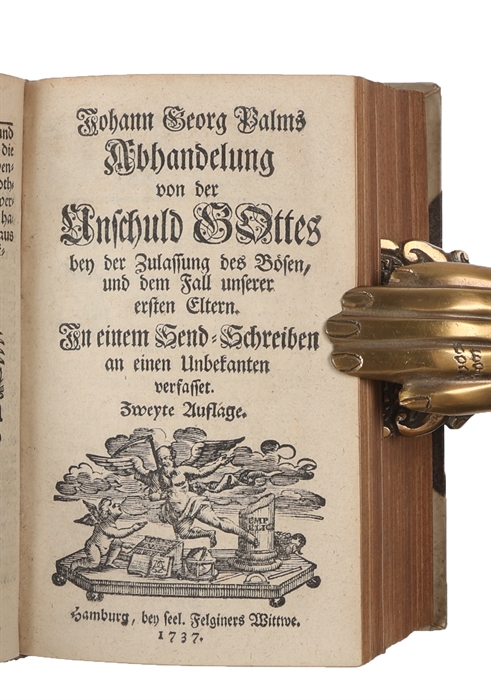 Johann Georg Palms
Abhandelung
von der
Unschuld GOttes
bey der Zulassung des Bösen,
und dem Fall unserer
ersten Eltern.
In einem Send-Schreiben
an einen Unbekanten
verfasset.
Zweyte Auflage.
Hamburg, bey seel. Felginers Wittwe.
1737.
und
die
ha-
aus